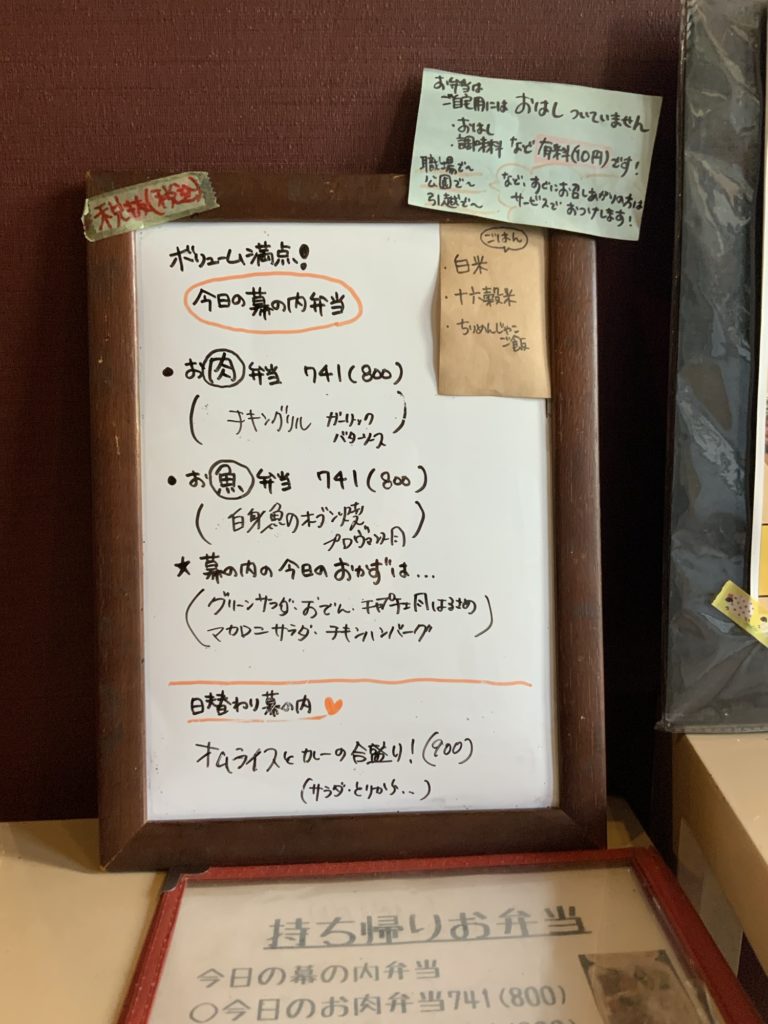 お弁当は
ご自宅用には おはし ついていません
・おはし
・調味料 など 有料(10円)です!
職場で〜
公園で〜
引越で〜
など、すぐにお召しあがりの方は
サービスで おつけします!
税抜(税込)
ごはん
・白米
・十六穀米
・ちりめんじゃこ
ご飯
ボリューム満点!
今日の幕の内弁当
・お肉弁当 741(800)
(チキングリル ガーリック
バターソース)
・お魚弁当 741(800)
(白身魚のオブン焼
プロヴァンス風)
★幕の内の今日のおかずは...
(グリーンサラダ・おでん・チャプチェ風はるさめ
マカロニサラダ・チキンハンバーグ)
日替わり幕の内
オムライスとカレーの合盛り!(900)
(サラダ・とりから..)
持ち帰りお弁当
今日の幕の内弁当
○今日のお肉弁当741(800)